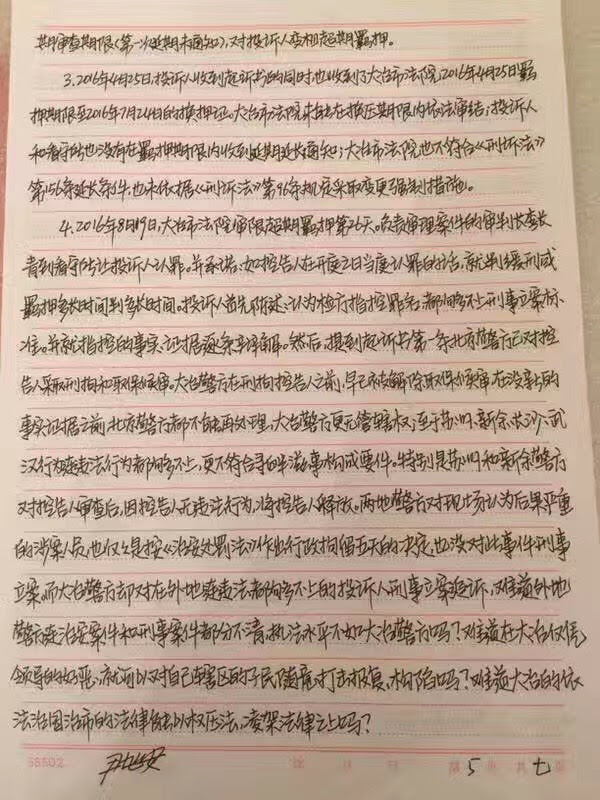 期审查期限(第一次延期未通知),对投诉人变相超期羁押。
3.2016年4月25日,投诉人收到起诉书的同时也收到了大冶市法院,2016年4月25日羁
押期限至2016年7月24日的换押证。大冶市法院未能在换压期限内依法审结;投诉人
和看守所也没有在羁押期限内收到延期延长通知;大冶市法院也不符合《刑诉法》
第156条延长条件,也未依据《刑诉法》第96条规定采取变更强制措施。
4.2016年8月19日,大冶市法院审限超期羁押第26天。负责审理案件的审判长查长
青到看守所让投诉人认罪。并承诺:如控告人在开庭2日当庭认罪的话,就判缓刑或
羁押多长时间判多长时间。投诉人首先陈述,认为检方指控罪名,都够不上刑事立案标
准。并就指控的事实、证据逐条予详解。然后,提到起诉书第一条北京警方已对控
告人采取刑拘和取保候审。大冶警方在刑拘控告人之前,早已被解除取保候审在没新的
事实证据之前,北京警方都不能再处理,大冶警方更无管辖权;至于苏州、新余、长沙、武
汉行为连违法行为都够不上,更不符合寻衅滋事构成要件。特别是苏州和新余警方
对控告人审查后,因控告人无违法行为,将控告人释放。两地警方对现场认为后果严重
的涉案人员,也仅仅是按《治安处罚法》作出行政拘留五天的决定,也没对此事件刑事
立案。而大冶警方却对在外地连违法都够不上的投诉人刑事立案追诉,难道外地
警方连治安案件和刑事案件都分不清,执法水平不如大冶警方吗?难道在大冶仅凭
领导的好恶,就可以对自己辖区的子民随意打击报复、构陷吗?难道大冶的依
法治国治市的法律能以权压法,凌架法律之上吗?
55502 第 5 页 共 七